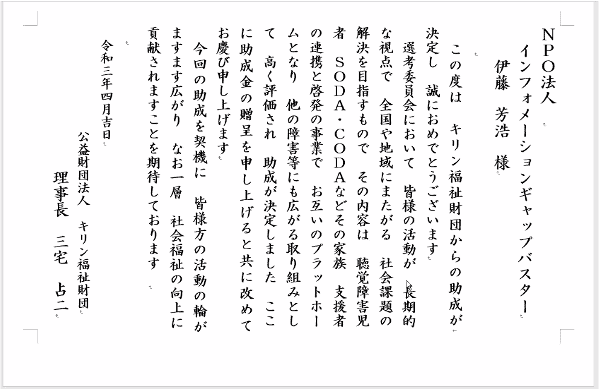 NPO法人
インフォメーションギャップバスター
伊藤 芳浩 様
この度は キリン福祉財団からの助成が
決定し 誠におめでとうございます
選考委員会において 皆様の活動が 長期的
な視点で 全国や地域にまたがる 社会課題の
解決を目指すもので その内容は 聴覚障害児
者 SODA・CODAなどその家族 支援者
の連携と啓発の事業で お互いのプラットホー
ムとなり 他の障害等にも広がる取り組みとし
て 高く評価され 助成が決定しました ここ
に助成金の贈呈を申し上げると共に改めて
お慶び申し上げます
今回の助成を契機に 皆様方の活動の輪が
ますます広がり なお一層 社会福祉の向上に
貢献されますことを期待しております
令和三年四月吉日
公益財団法人 キリン福祉財団
理事長 三宅 占二